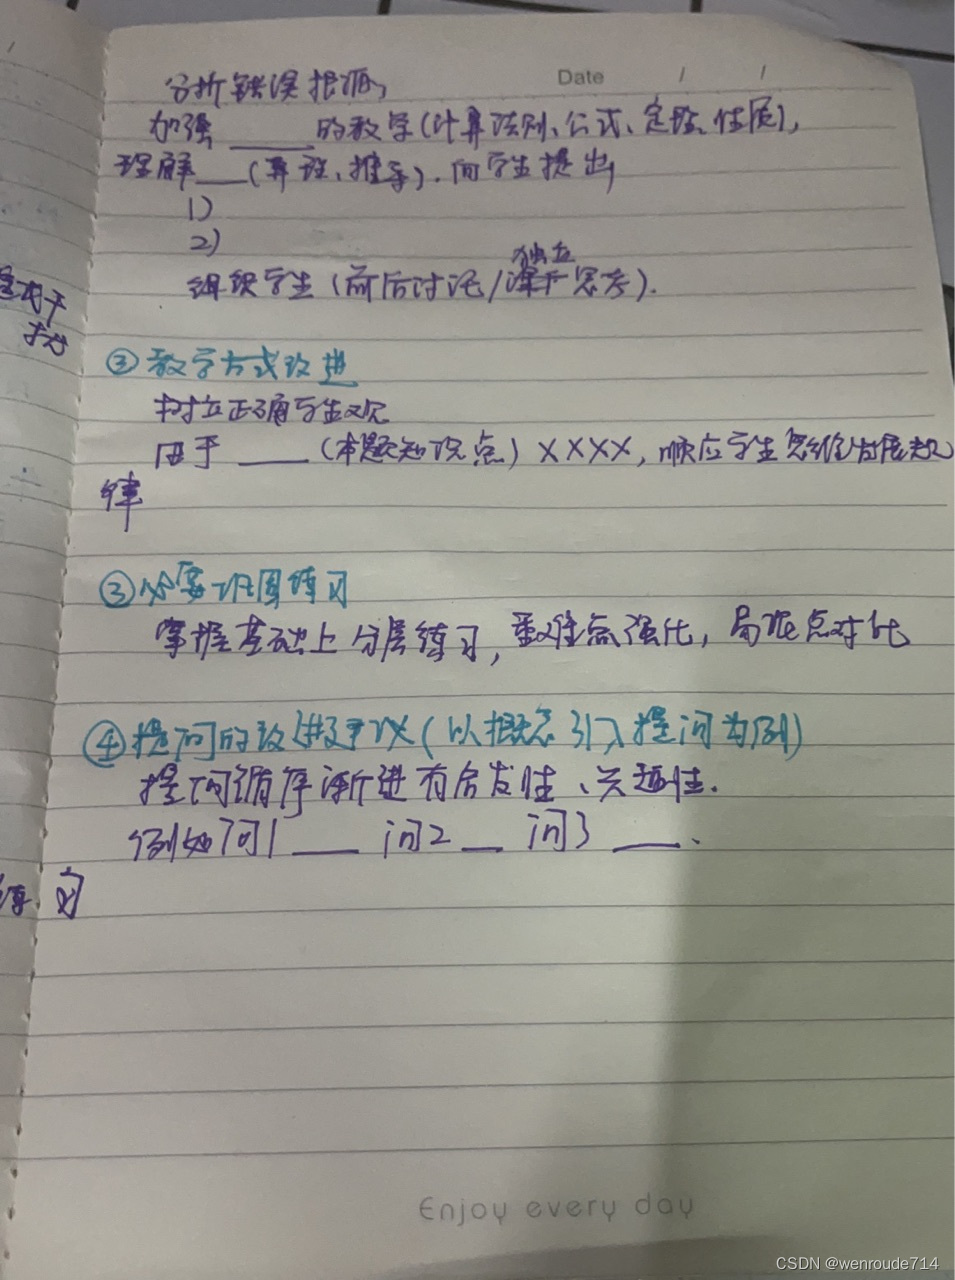 Date / /
分析错误根源,
加强____的教学(计算法则、公式、定理、性质),
理解___(算理、推导).向学生提出
1)
2)
独立
组织学生(前后讨论/思考).
②教学方式改进
树立正确学生观
由于____(本题知识点)××××,顺应学生思维发展规
律
③必要巩固练习
掌握基础上分层练习,重难点强化,易混点对比
④提问的改进建议(以概念引入提问为例)
提问循序渐进有启发性、兴趣性.
例如问1____ 问2___ 问3____.
习
Enjoy every day
CSDN @wenroude714